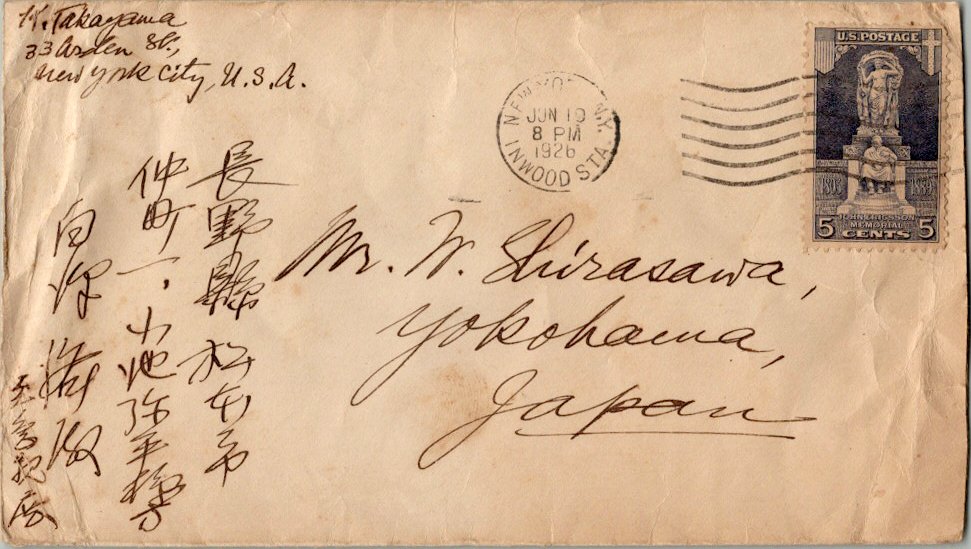 K. Takayama
33 Arden St.,
New York City, U.S.A.
NEW YORK, N.Y.
JUN 10
8 PM
1926
INWOOD STA.
U.S. POSTAGE
1803 1889
JOHN ERICSSON
MEMORIAL
5 CENTS 5
Mr. W. Shirasawa,
Yokohama,
Japan
長野縣松本市
仲町一、小池弥平様方
白澤